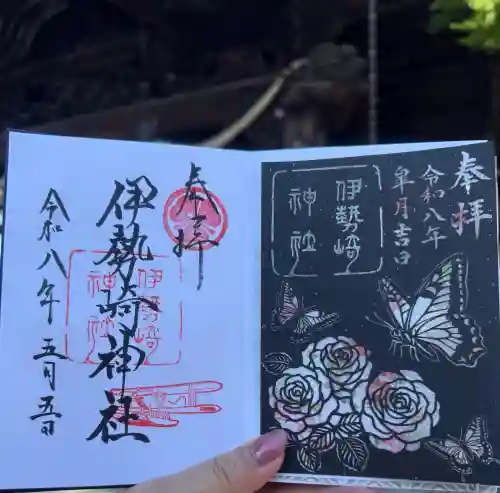 奉拝
伊勢崎神社
伊勢崎
神社
令和八年五月五日
奉拝
令和八年
皐月吉日
伊勢崎
神社